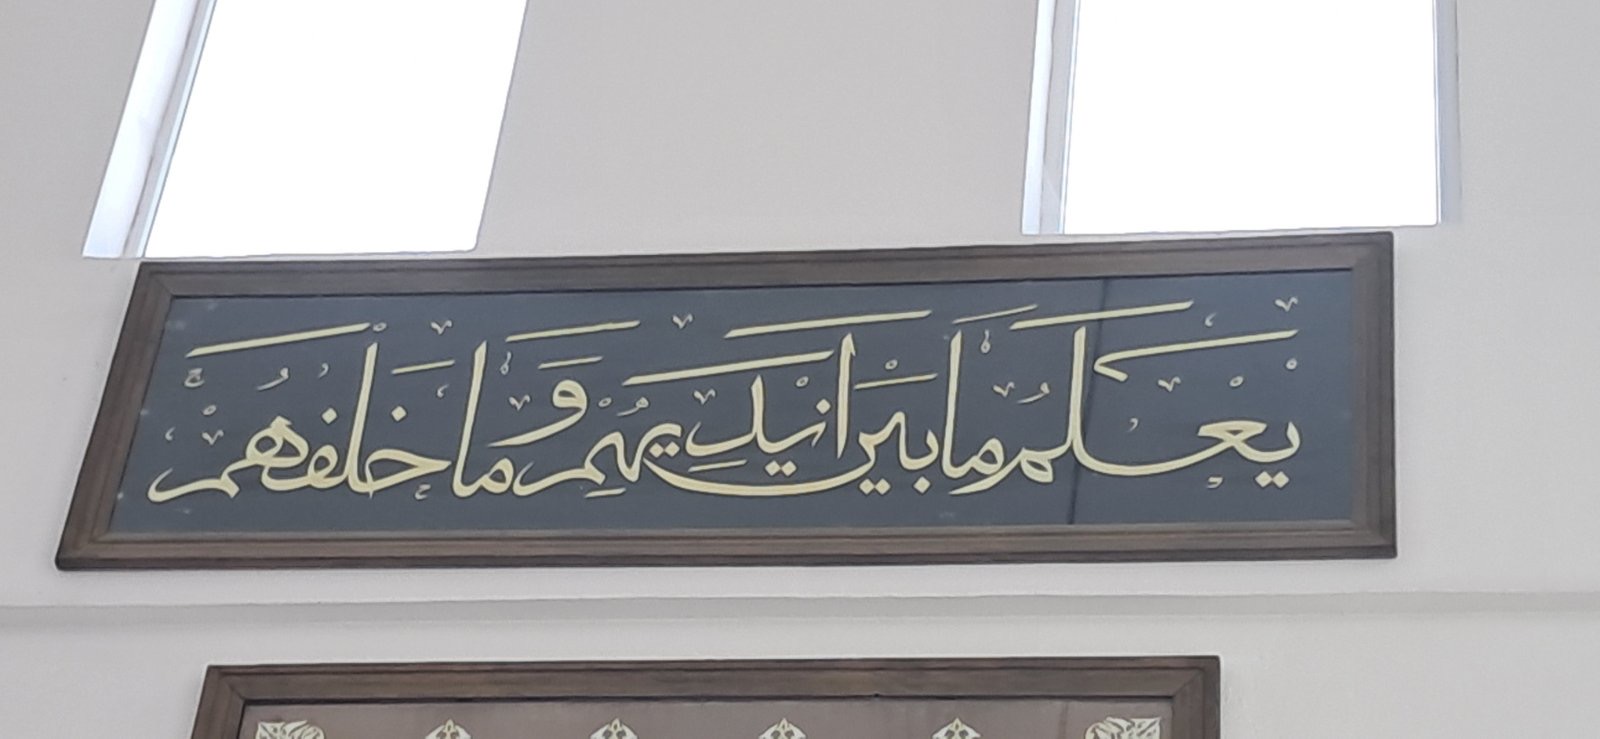 يَعْلَمُ مَا بَيْنَ اَيْدِيهِمْ وَمَا خَلْفَهُمْ